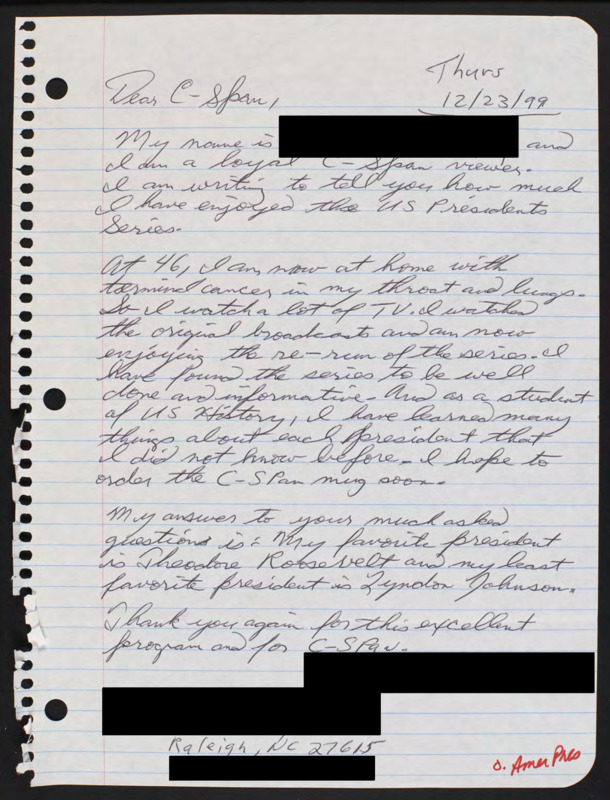 Thurs
12/23/99
Dear C-Span,
My name is and
I am a loyal C-Span viewer.
I am writing to tell you how much
I have enjoyed the US Presidents
Series.
At 46, I am now at home with
terminal cancer in my throat and lungs.
So I watch a lot of TV. I watched
the original broadcast and am now
enjoying the re-run of the series. I
have found the series to be well
done and informative. And as a student
of US History, I have learned many
things about each president that
I did not know before. I hope to
order the C-SPan mug soon.
My answer to your much asked
question is: My favorite president
is Theodore Roosevelt and my least
favorite president is Lyndon Johnson.
Thank you again for this excellent
program and for C-SPan.
Raleigh, NC 27615
O. Amer Pres